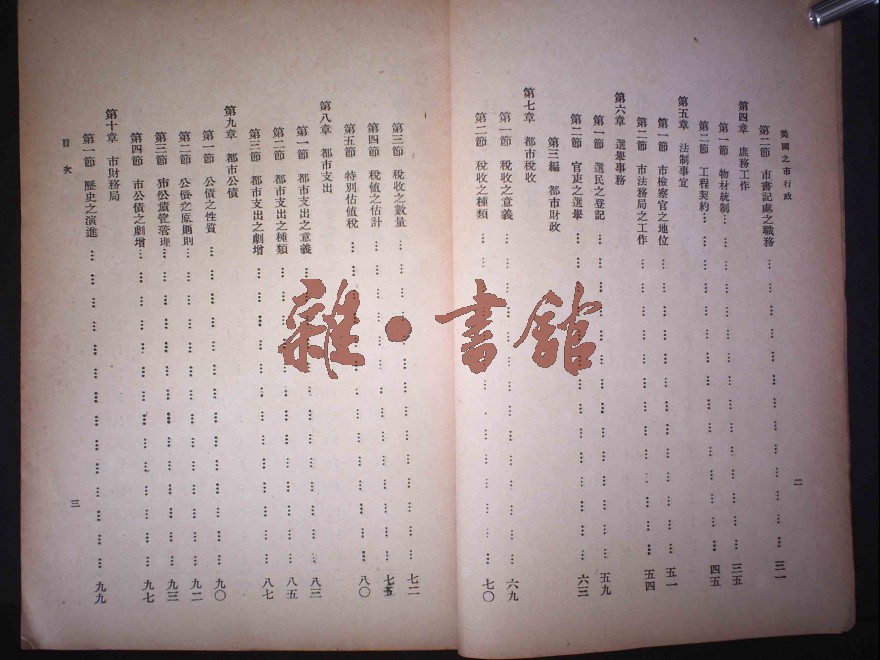 美國之市行政
二
第二節 市書記處之職務 … 三一
第四章 庶務工作
第一節 物材統制 … 三五
第二節 工程契約 … 四五
第五章 法制事宜
第一節 市檢察官之地位 … 五一
第二節 市法務局之工作 … 五四
第六章 選舉事務
第一節 選民之登記 … 五九
第二節 官吏之選舉 … 六三
第三編 都市財政
第七章 都市稅收
第一節 稅收之意義 … 六九
第二節 稅收之種類 … 七〇
第三節 稅收之數量 … 七二
第四節 稅值之估計 … 七五
第五節 特別估值稅 … 八〇
第八章 都市支出
第一節 都市支出之意義 … 八三
第二節 都市支出之種類 … 八五
第三節 都市支出之劇增 … 八七
第九章 都市公債
第一節 公債之性質 … 九〇
第二節 公債之原則 … 九二
第三節 市公債管理 … 九三
第四節 市公債之劇增 … 九七
第十章 市財務局
第一節 歷史之演進 … 九九
目次
三
雜·書館